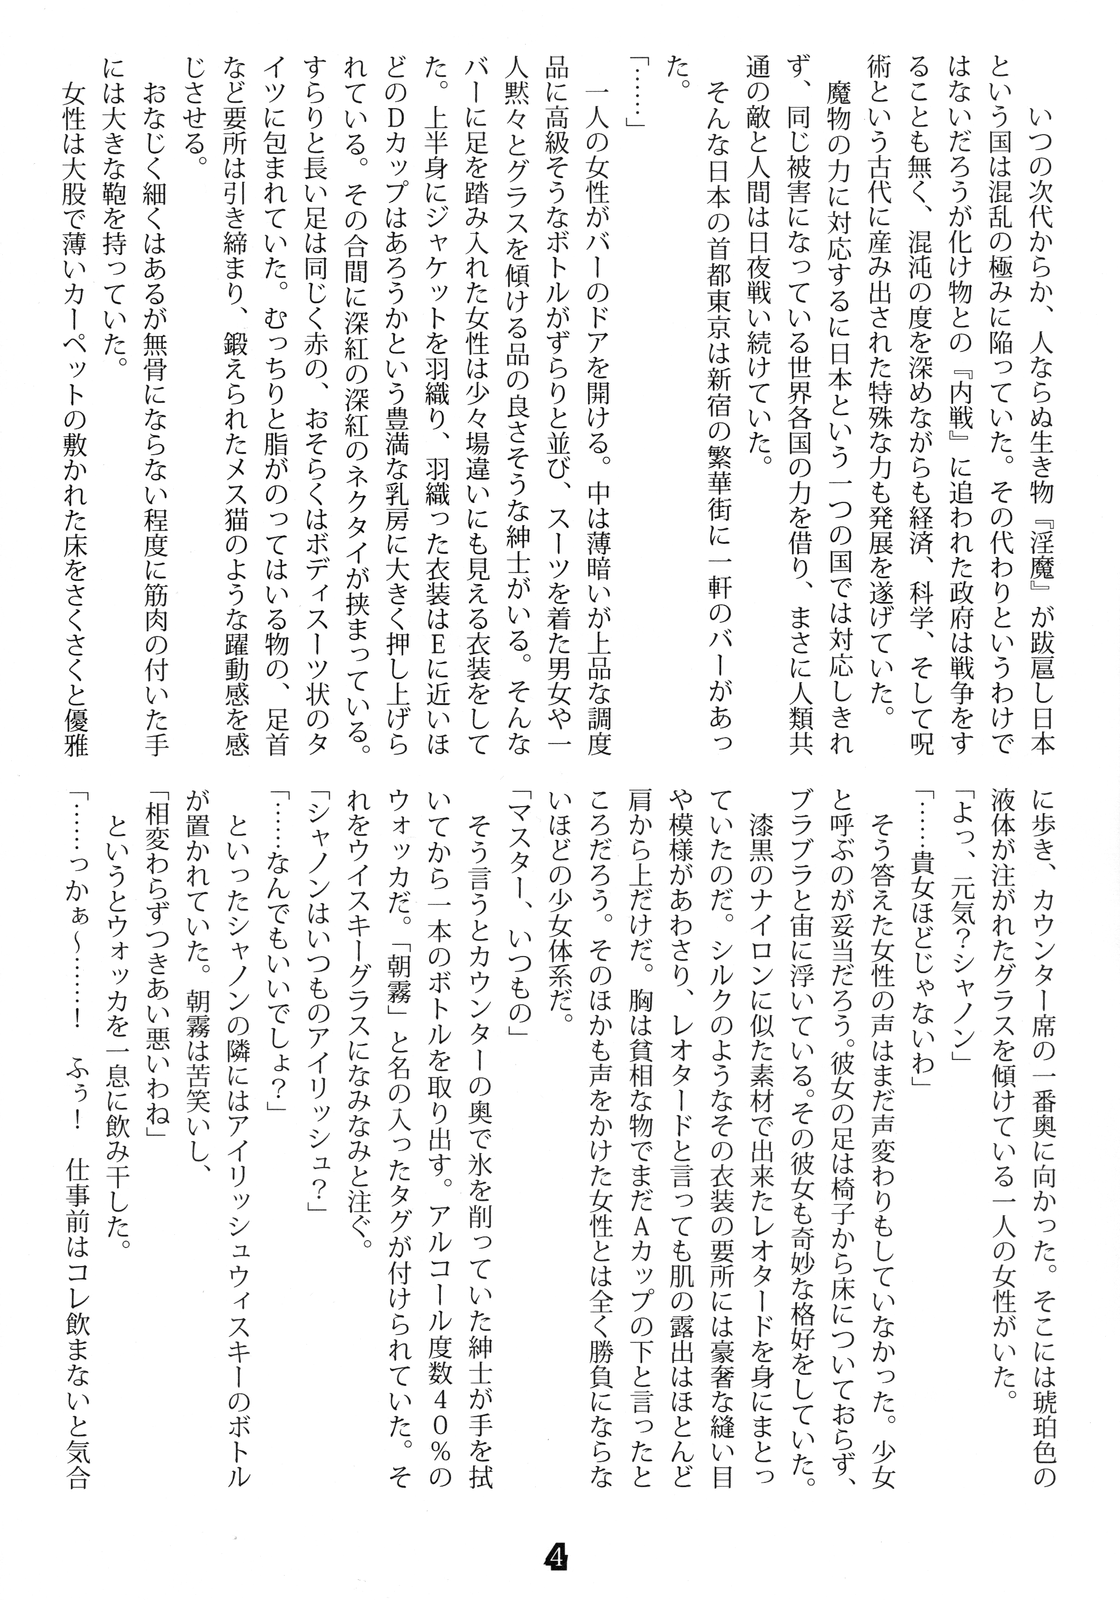 いつの次代からか、人ならぬ生き物『淫魔』が跋扈し日本
という国は混乱の極みに陥っていた。その代わりというわけで
はないだろうが化け物との『内戦』に追われた政府は戦争をす
ることも無く、混沌の度を深めながらも経済、科学、そして呪
術という古代に産み出された特殊な力も発展を遂げていた。
魔物の力に対応するに日本という一つの国では対応しきれ
ず、同じ被害になっている世界各国の力を借り、まさに人類共
通の敵と人間は日夜戦い続けていた。
そんな日本の首都東京は新宿の繁華街に一軒のバーがあっ
た。
「……」
一人の女性がバーのドアを開ける。中は薄暗いが上品な調度
品に高級そうなボトルがずらりと並び、スーツを着た男女や一
人黙々とグラスを傾ける品の良さそうな紳士がいる。そんな
バーに足を踏み入れた女性は少々場違いにも見える衣装をして
た。上半身にジャケットを羽織り、羽織った衣装はEに近いほ
どのDカップはあろうかという豊満な乳房に大きく押し上げら
れている。その合間に深紅の深紅のネクタイが挟まっている。
すらりと長い足は同じく赤の、おそらくはボディスーツ状のタ
イツに包まれていた。むっちりと脂がのってはいる物の、足首
など要所は引き締まり、鍛えられたメス猫のような躍動感を感
じさせる。
おなじく細くはあるが無骨にならない程度に筋肉の付いた手
には大きな鞄を持っていた。
女性は大股で薄いカーペットの敷かれた床をさくさくと優雅
に歩き、カウンター席の一番奥に向かった。そこには琥珀色の
液体が注がれたグラスを傾けている一人の女性がいた。
「よっ、元気？シャノン」
「……貴女ほどじゃないわ」
そう答えた女性の声はまだ声変わりもしていなかった。少女
と呼ぶのが妥当だろう。彼女の足は椅子から床についておらず、
ブラブラと宙に浮いている。その彼女も奇妙な格好をしていた。
漆黒のナイロンに似た素材で出来たレオタードを身にまとっ
ていたのだ。シルクのようなその衣装の要所には豪奢な縫い目
や模様があわさり、レオタードと言っても肌の露出はほとんど
肩から上だけだ。胸は貧相な物でまだAカップの下と言ったと
ころだろう。そのほかも声をかけた女性とは全く勝負にならな
いほどの少女体系だ。
「マスター、いつもの」
そう言うとカウンターの奥で氷を削っていた紳士が手を拭
いてから一本のボトルを取り出す。アルコール度数40%の
ウォッカだ。「朝霧」と名の入ったタグが付けられていた。そ
れをウイスキーグラスになみなみと注ぐ。
「シャノンはいつものアイリッシュ？」
「……なんでもいいでしょ？」
といったシャノンの隣にはアイリッシュウィスキーのボトル
が置かれていた。朝霧は苦笑いし、
「相変わらずつきあい悪いわね」
というとウォッカを一息に飲み干した。
「……っかぁ～……！　ふぅ！　仕事前はコレ飲まないと気合
4